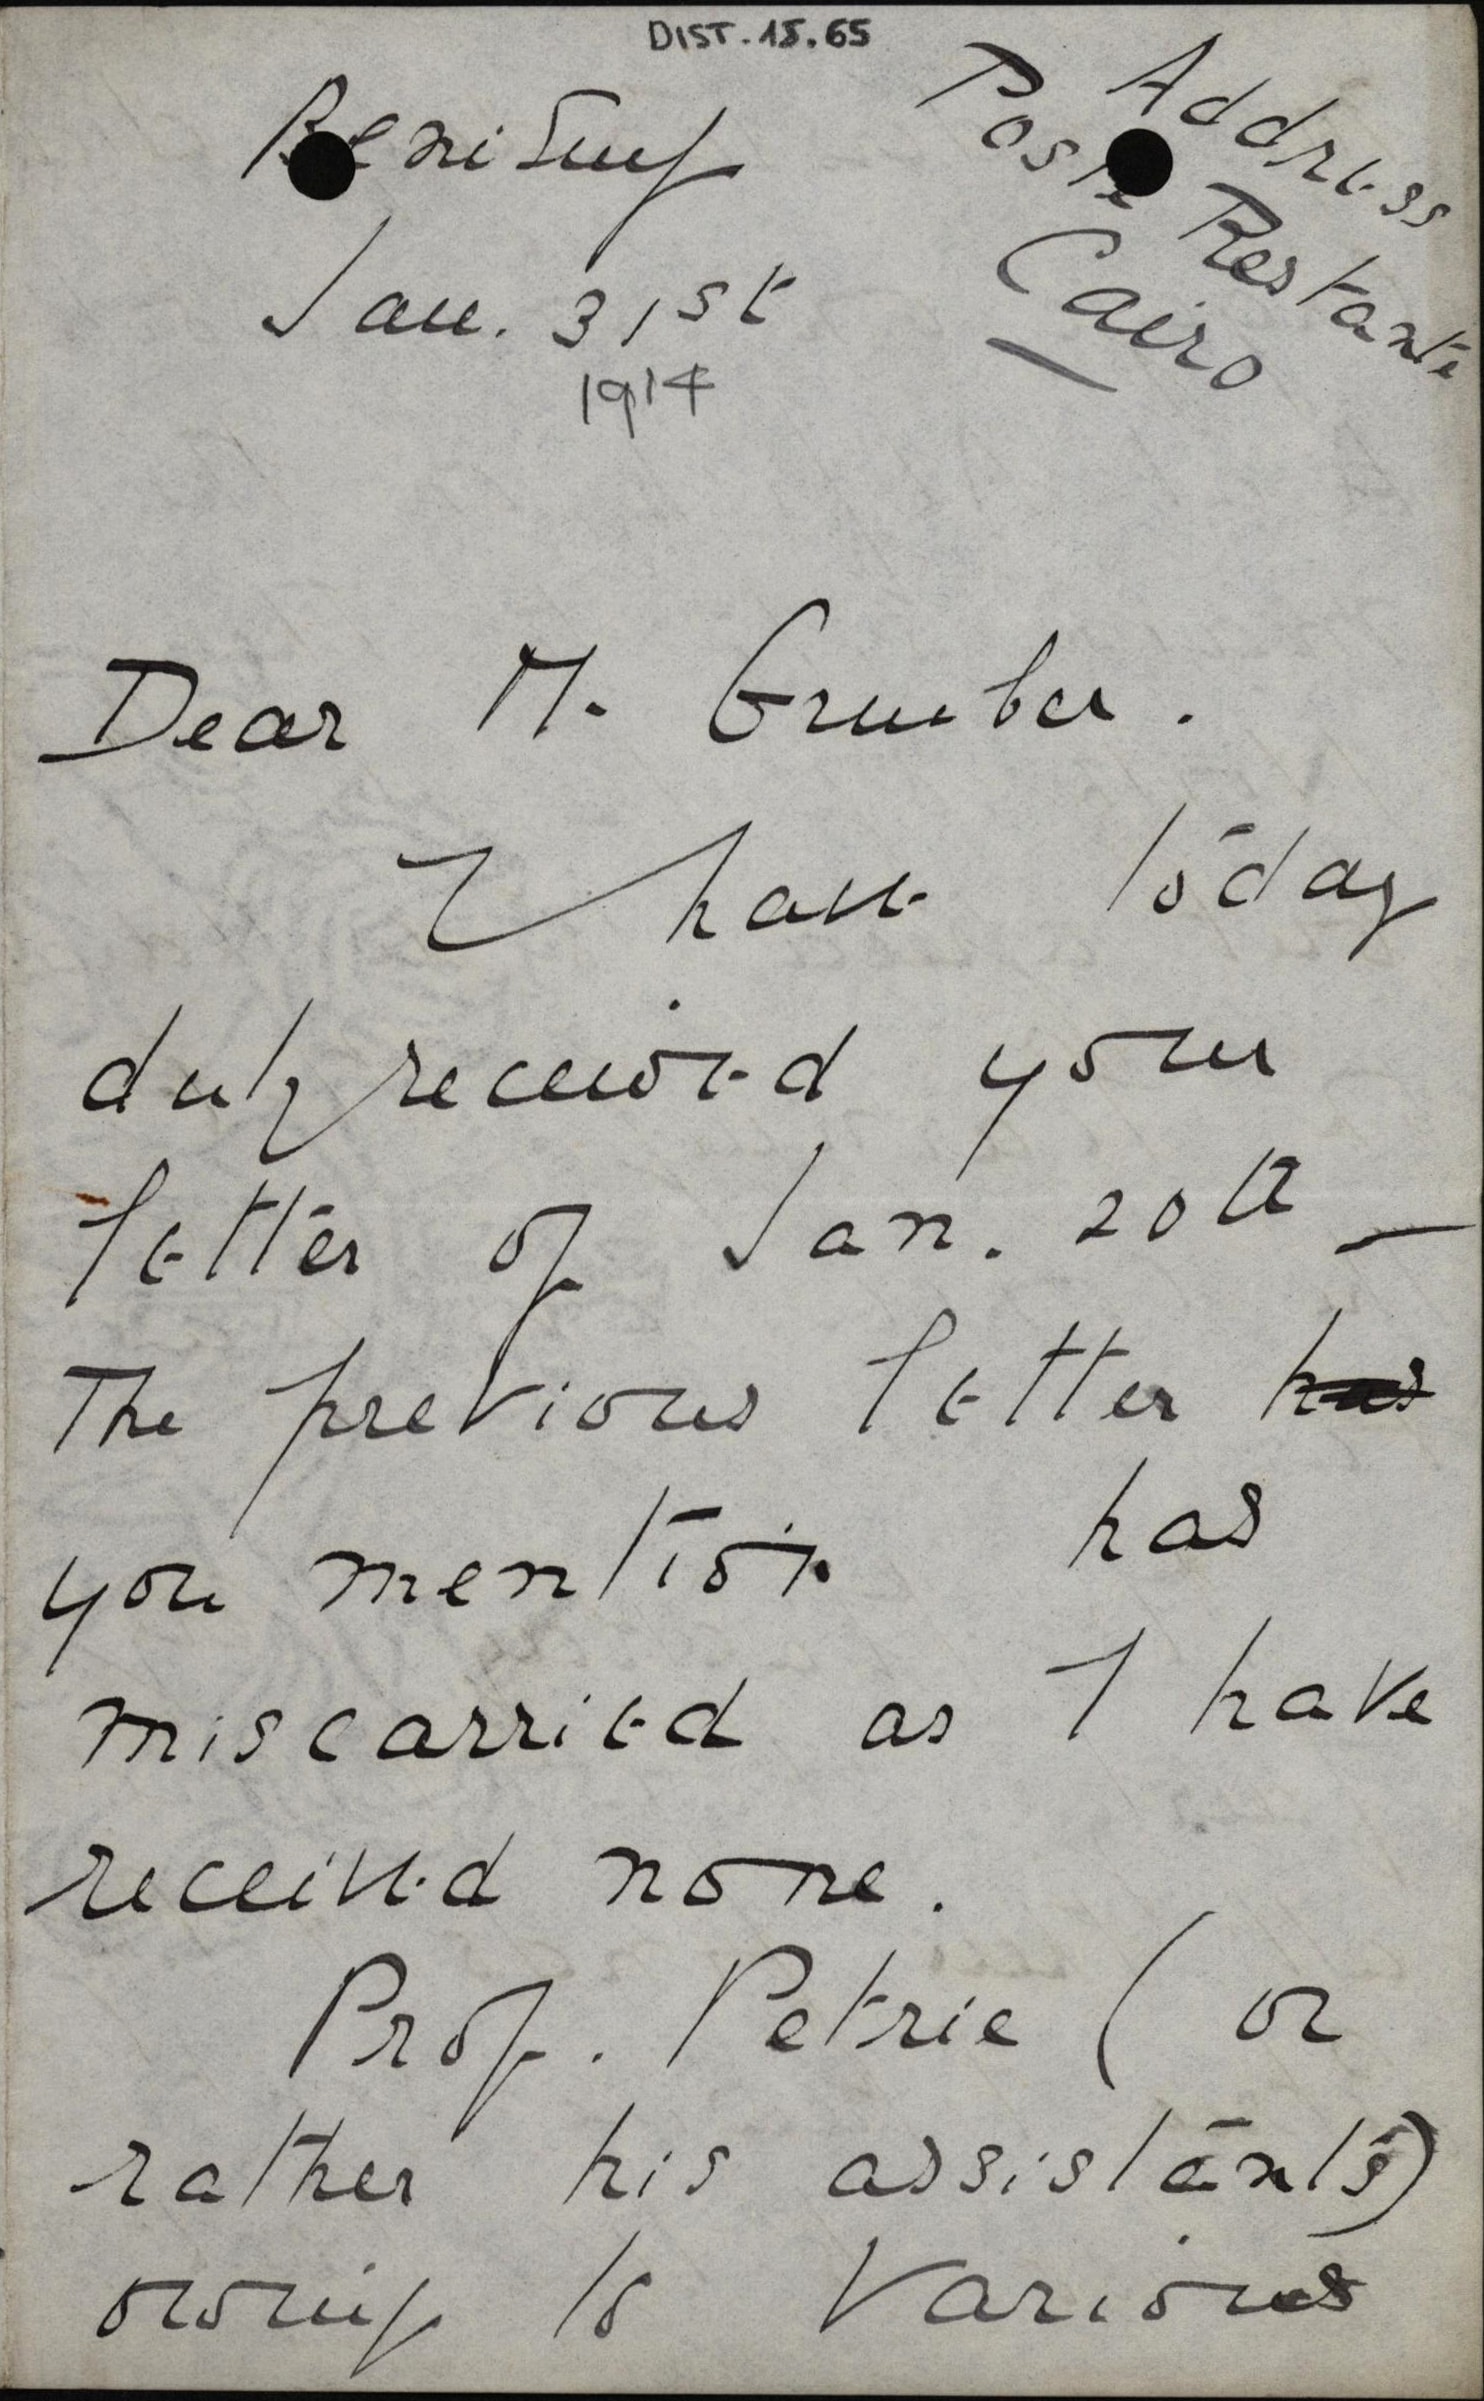 DIST. 15.65
Beni Suef
Jan. 31st
1914
Address
Poste Restante
Cairo
Dear M. Grueber.
I have today
duly received your
letter of Jan. 20th —
The previous letter has
you mention has
miscarried as I have
received none.
Prof. Petrie (or
rather his assistants)
owing to various